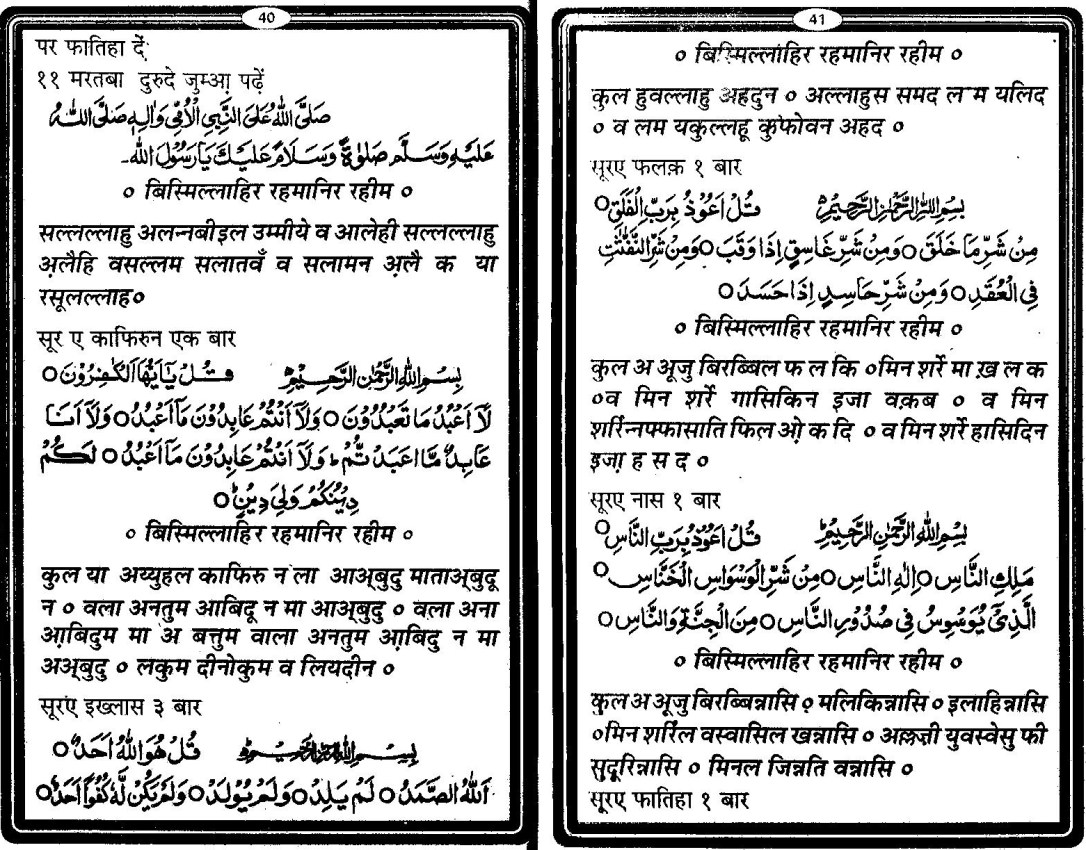 40
पर फातिहा दें
११ मरतबा दुरुदे जुम्आ़ पढ़ें
صَلَّى اللهُ عَلَى النَّبِيِّ الْأُمِّىِّ وَاٰلِهٖ صَلَّى اللهُ
عَلَيْهِ وَسَلَّمْ صَلٰوةً وَّسَلَامًا عَلَيْكَ يَا رَسُوْلَ اللّٰه۔
० बिस्मिल्लाहिर रहमानिर रहीम ०
सल्लल्लाहु अलन्नबीइल उम्मीये व आलेही सल्लल्लाहु
अ़लैहि वसल्लम सलातवँ व सलामन अ़लै क या
रसूलल्लाह०
सूर ए काफिरुन एक बार
بِسْمِ اللهِ الرَّحْمٰنِ الرَّحِيْمِ قُلْ يٰۤاَيُّهَا الْكٰفِرُوْنَ○
لَاۤ اَعْبُدُ مَا تَعْبُدُوْنَ○وَلَاۤ اَنْتُمْ عَابِدُوْنَ مَاۤ اَعْبُدُ○وَلَاۤ اَنَا
عَابِدٌ مَّا عَبَدْتُّمْ، وَلَاۤ اَنْتُمْ عَابِدُوْنَ مَاۤ اَعْبُدُ○ لَكُمْ
دِيْنُكُمْ وَلِيَ دِيْنِ○
० बिस्मिल्लाहिर रहमानिर रहीम ०
कुल या अय्युहल काफिरु न ला आअ्बुदु माताअ्बुदू
न ० वला अनतुम आबिदू न मा आअ्बुदु ० वला अना
आ़बिदुम मा अ बत्तुम वाला अनतुम आ़बिदु न मा
अअ्बुदु ० लकुम दीनोकुम व लियदीन ०
सूरए इख्लास ३ बार
بِسْمِ اللهِ الرَّحْمٰنِ الرَّحِيْمِ قُلْ هُوَ اللهُ اَحَدٌ○
اَللهُ الصَّمَدُ○ لَمْ يَلِدْ○وَلَمْ يُوْلَدْ○وَلَمْ يَكُنْ لَّهٗ كُفُوًا اَحَدٌ○
41
० बिस्मिल्लाहिर रहमानिर रहीम ०
कुल हुवल्लाहु अहदुन ० अल्लाहुस समद लम यलिद
० व लम यकुल्लहू कुफोवन अहद ०
सूरए फलक़ १ बार
بِسْمِ اللهِ الرَّحْمٰنِ الرَّحِيْمِ قُلْ اَعُوْذُ بِرَبِّ الْفَلَقِ○
مِنْ شَرِّ مَا خَلَقَ○وَمِنْ شَرِّ غَاسِقٍ اِذَا وَقَبَ○وَمِنْ شَرِّ النَّفّٰثٰتِ
فِى الْعُقَدِ○وَمِنْ شَرِّ حَاسِدٍ اِذَا حَسَدَ○
० बिस्मिल्लाहिर रहमानिर रहीम ०
कुल अ अूजु बिरब्बिल फ ल कि ०मिन शर्रे मा ख़ ल क
०व मिन शर्रे गासिकिन इजा वक़ब ० व मिन
शर्रिन्नफ्फासाति फिल ओ़ क दि ० व मिन शर्रे हासिदिन
इजा़ ह स द ०
सूरए नास १ बार
بِسْمِ اللهِ الرَّحْمٰنِ الرَّحِيْمِ قُلْ اَعُوْذُ بِرَبِّ النَّاسِ○
مَلِكِ النَّاسِ○اِلٰهِ النَّاسِ○مِنْ شَرِّ الْوَسْوَاسِ الْخَنَّاسِ○
الَّذِىْ يُوَسْوِسُ فِى صُدُوْرِ النَّاسِ○مِنَ الْجِنَّةِ وَالنَّاسِ○
० बिस्मिल्लाहिर रहमानिर रहीम ०
कुल अ अूजु बिरब्बिन्नासि ० मलिकिन्नासि ० इलाहिन्नासि
०मिन शर्रिल वस्वासिल खन्नासि ० अल्लज़ी युवस्वेसु फी
सुदूरिन्नासि ० मिनल जिन्नति वन्नासि ०
सूरए फातिहा १ बार